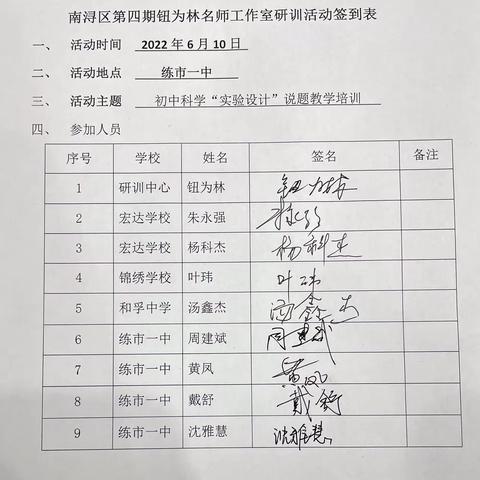 南浔区第四期钮为林名师工作室研训活动签到表
一、 活动时间 2022 年 6 月 10 日
二、 活动地点 练市一中
三、 活动主题 初中科学“实验设计”说题教学培训
四、 参加人员
序号 学校 姓名 签名 备注
1 研训中心 钮为林 钮为林
2 宏达学校 朱永强
3 宏达学校 杨科杰 杨科杰
4 锦绣学校 叶玮 叶玮
5 和孚中学 汤鑫杰 汤鑫杰
6 练市一中 周建斌 周建斌
7 练市一中 黄凤 黄凤
8 练市一中 戴舒 戴舒
9 练市一中 沈雅慧 沈雅慧